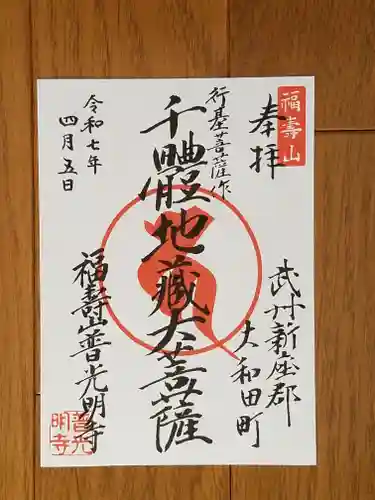 福壽山
奉拝
武州新座郡
大和田町
行基菩薩作
千體地藏大菩薩
福壽山普光明寺
令和七年
四月五日
普光
明寺